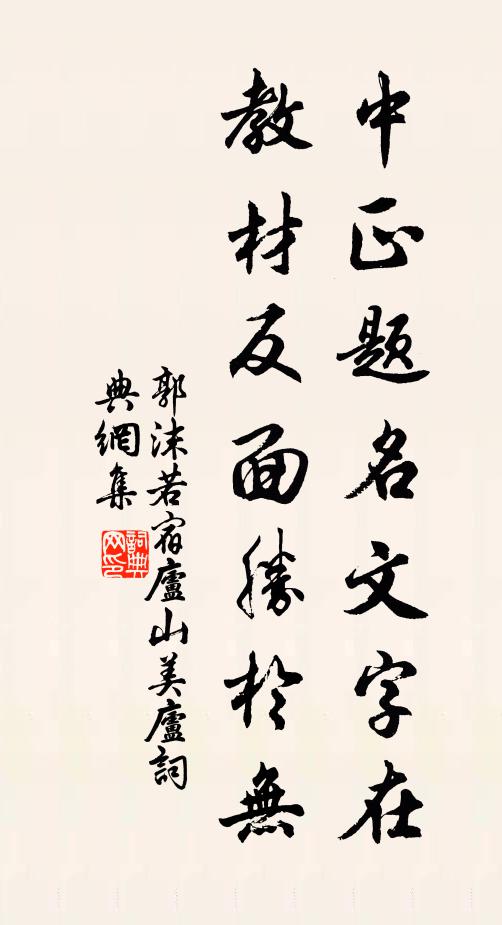 中正題名文字在
教材反面勝於無
郭沫若宿廬山美廬詞
典網集
詞典
网印